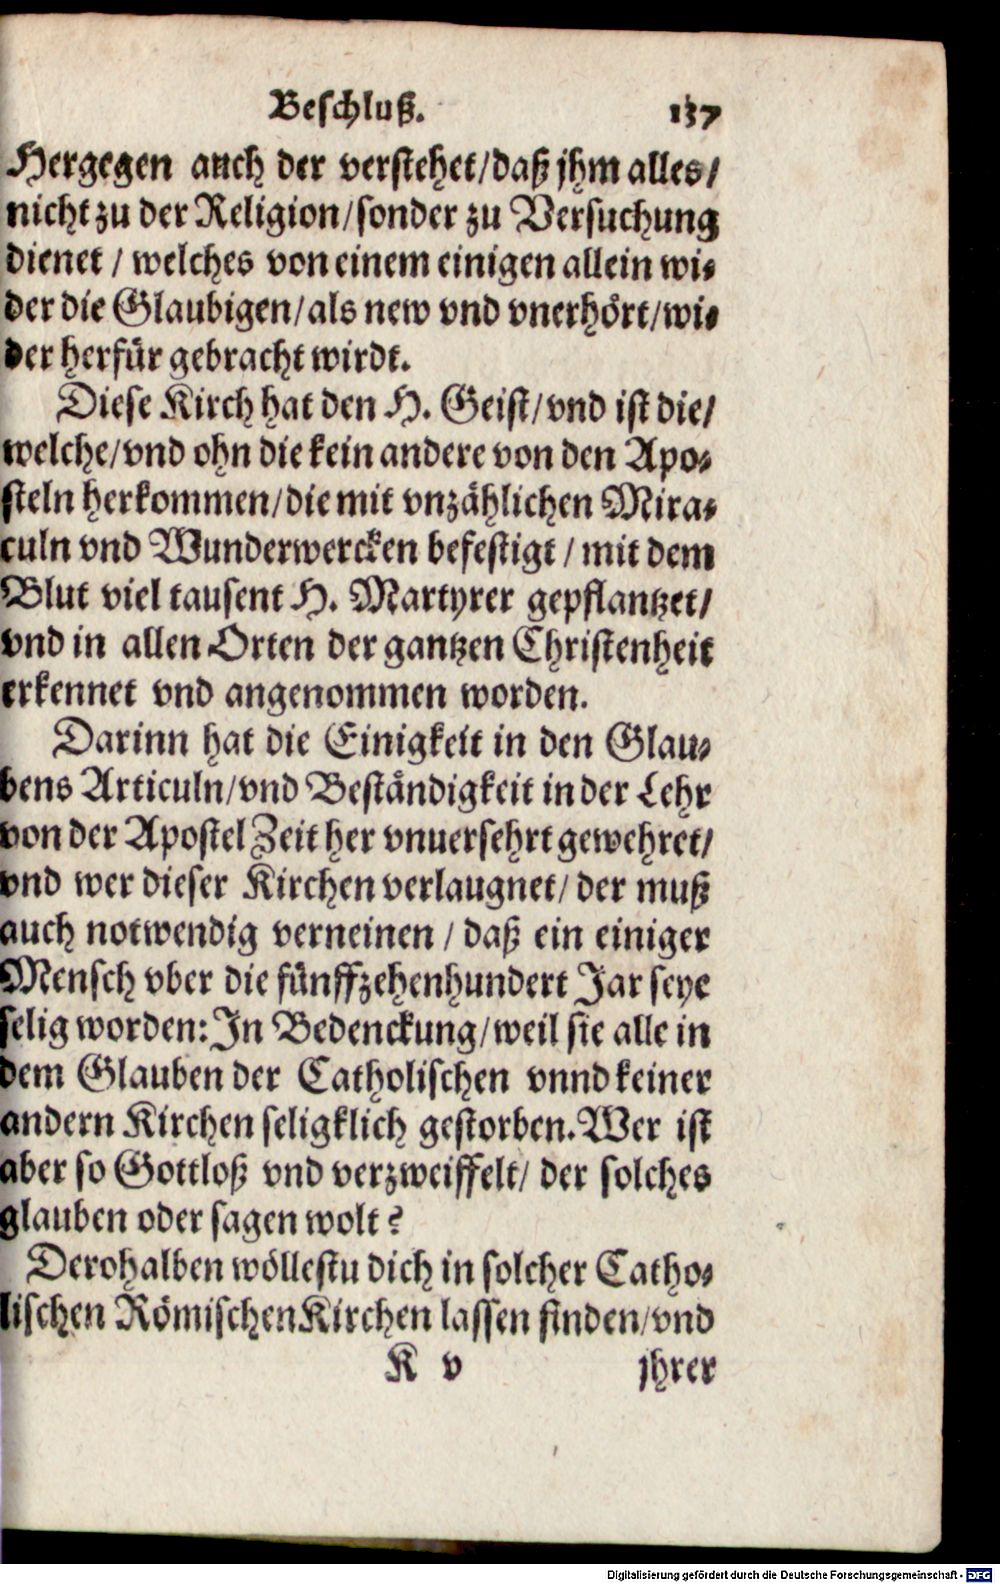 Beschluß. 137
Hergegen auch der verstehet/daß jhm alles/
nicht zu der Religion/sonder zu Versuchung
dienet / welches von einem einigen allein wi-
der die Glaubigen/als new vnd vnerhört/wi-
der herfür gebracht wirdt.
Diese Kirch hat den H. Geist/vnd ist die/
welche/vnd ohn die kein andere von den Apo-
steln herkommen/die mit vnzählichen Mira-
culn vnd Wunderwercken befestigt / mit dem
Blut viel tausent H. Martyrer gepflantzet/
vnd in allen Orten der gantzen Christenheit
erkennet vnd angenommen worden.
Darinn hat die Einigkeit in den Glau-
bens Articuln/vnd Beständigkeit in der Lehr
von der Apostel Zeit her vnuersehrt gewehret/
vnd wer dieser Kirchen verlaugnet/ der muß
auch notwendig verneinen / daß ein einiger
Mensch vber die fünffzehenhundert Jar seye
selig worden: In Bedenckung/weil sie alle in
dem Glauben der Catholischen vnnd keiner
andern Kirchen seligklich gestorben. Wer ist
aber so Gottloß vnd verzweiffelt/ der solches
glauben oder sagen wolt?
Derohalben wöllestu dich in solcher Catho-
lischen Römischen Kirchen lassen finden/vnd
K v jhrer
Digitalisierung gefördert durch die Deutsche Forschungsgemeinschaft - DFG